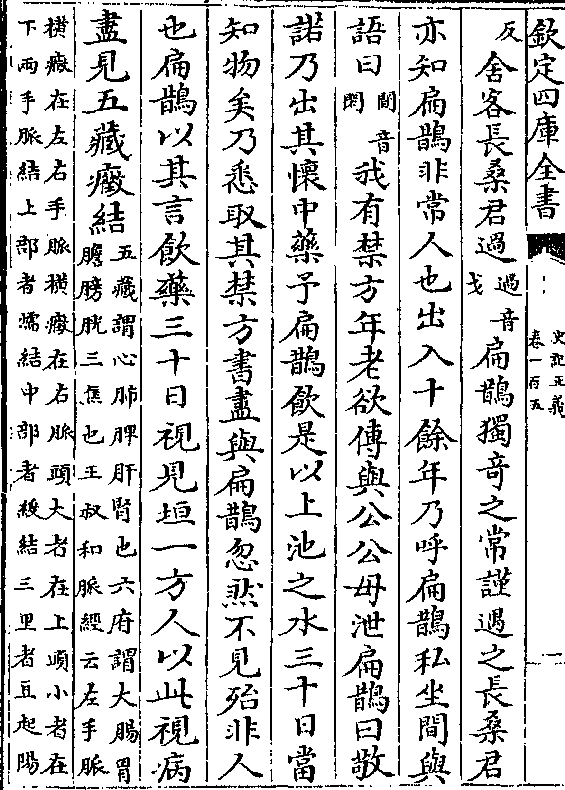 欽定四庫全書
史記正義
卷一百五
一
反舍客長桑君過過音戈扁鵲獨竒之常謹遇之長桑君
亦知扁鵲非常人也出入十餘年乃呼扁鵲私坐間與
語曰間音閑我有禁方年老欲傳與公公毋泄扁鵲曰敬
諾乃出其懷中藥予扁鵲飲是以上池之水三十日當
知物矣乃悉取其禁方書盡與扁鵲忽然不見殆非人
也扁鵲以其言飲藥三十日視見垣一方人以此視病
盡見五藏癥結
五藏謂心肺脾肝腎也六府謂大腸胃
膽膀胱三焦也王叔和脈經云左手脈
橫癥在左右手脈橫癥在右脈頭大者在上頭小者在
下兩手脈結上部者濡結中部者緩結三里者豆起陽